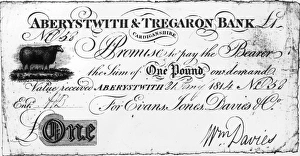 ABERYSTWITH & TREGARON BANK £1.
CARDIGANSHIRE
No 50
Promise to pay the Bearer
the Sum of One Pound, on demand
Value received ABERYSTWITH 21 1814 No 50
Entd For Evans, Jones, Davies & Co.
£ One Wm Davies